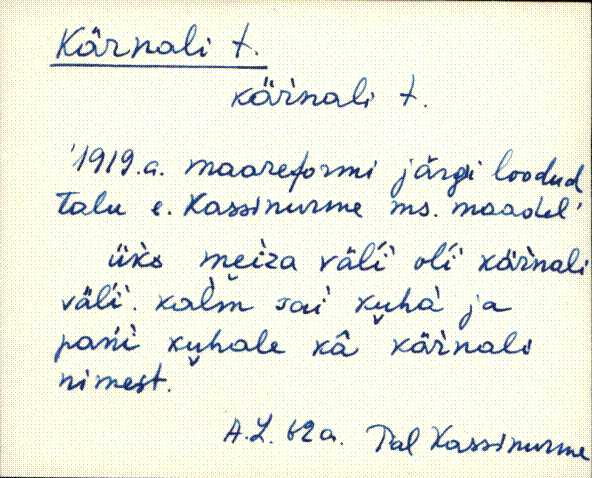 Kärnali t.
kär̀nali t.
'1919.a. maareformi järgi loodud
talu e. Kassinurme ms. maadel'
üks meiza väĺi oĺi kär̀nali
väĺi. kaĺm sai kuha ja
pańi kuhale kâ kär̀nali
nimest.
A.L. 62a. Pal Kassinurme